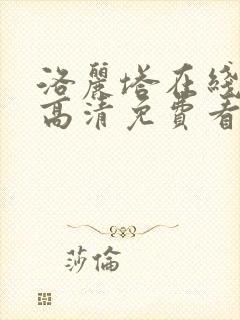 洛麗塔在綫
高清免費看
莎倫